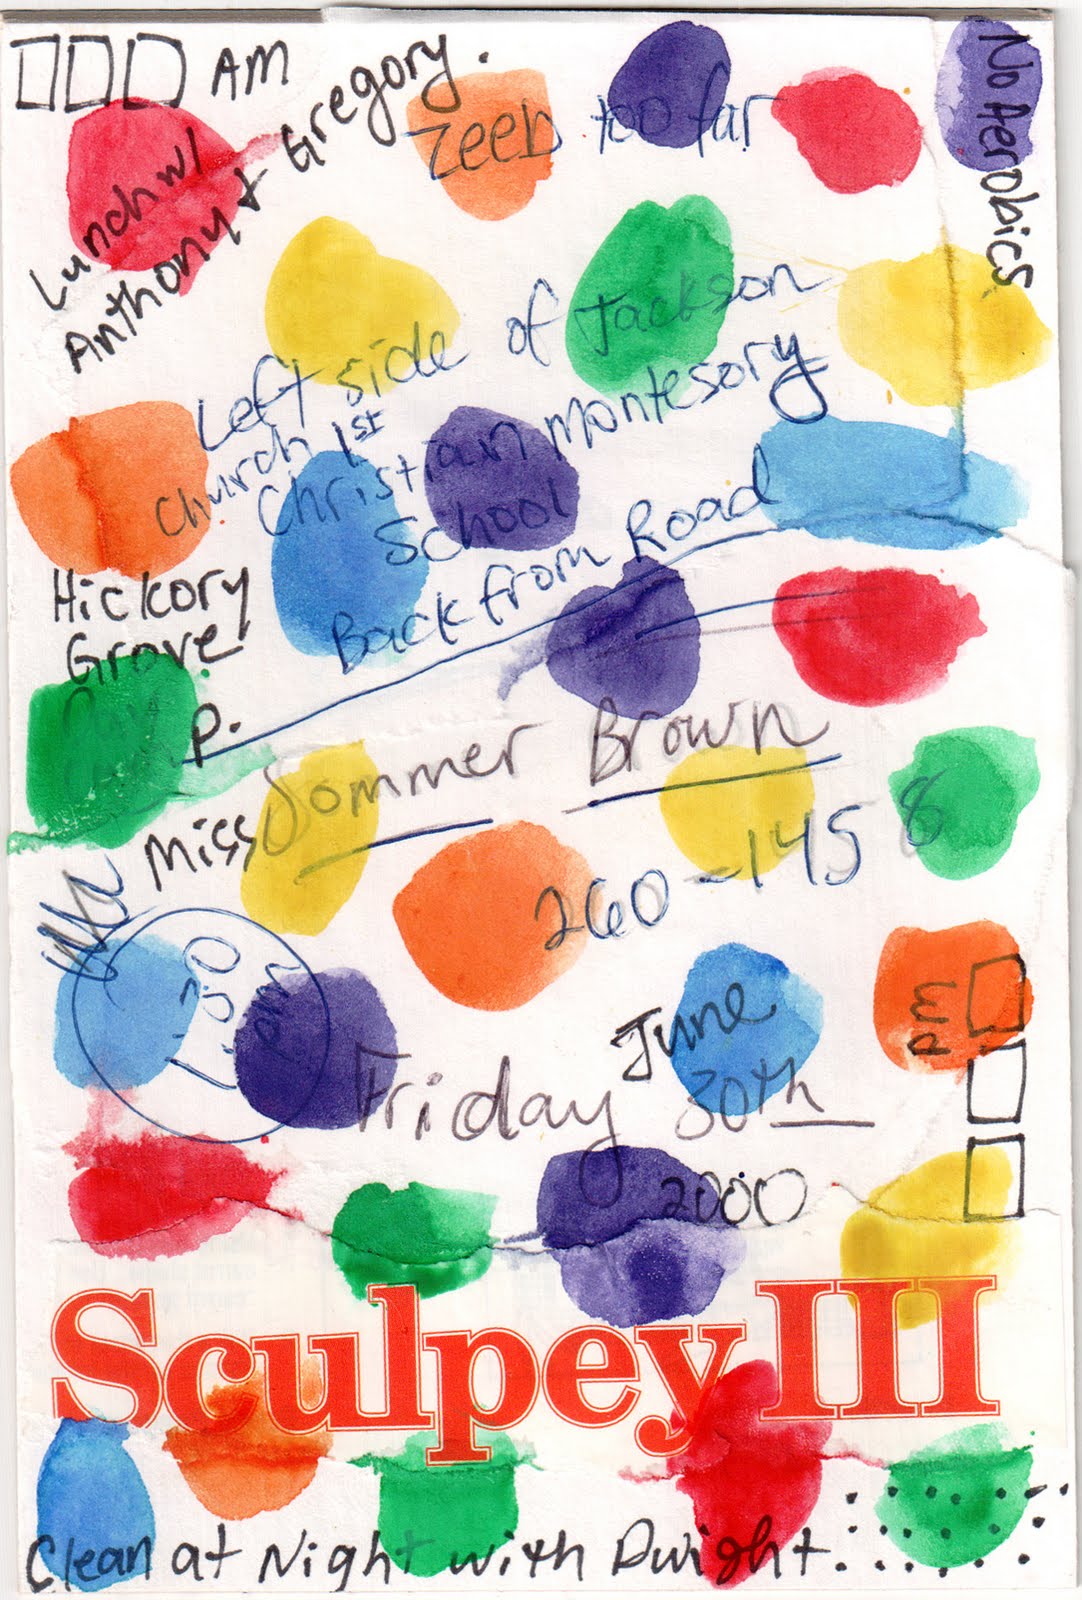 AM
Lunch w/
Anthony + Gregory.
Zeeb too far
No Aerobics
Left side of Jackson
church 1st
Christian Montesory
School
Back from Road
Hickory
Grove
P.
Miss Sommer Brown
260-1458
1:30
pm
June
Friday 30th
2000
PM
Sculpey III
Clean at Night with Dwight